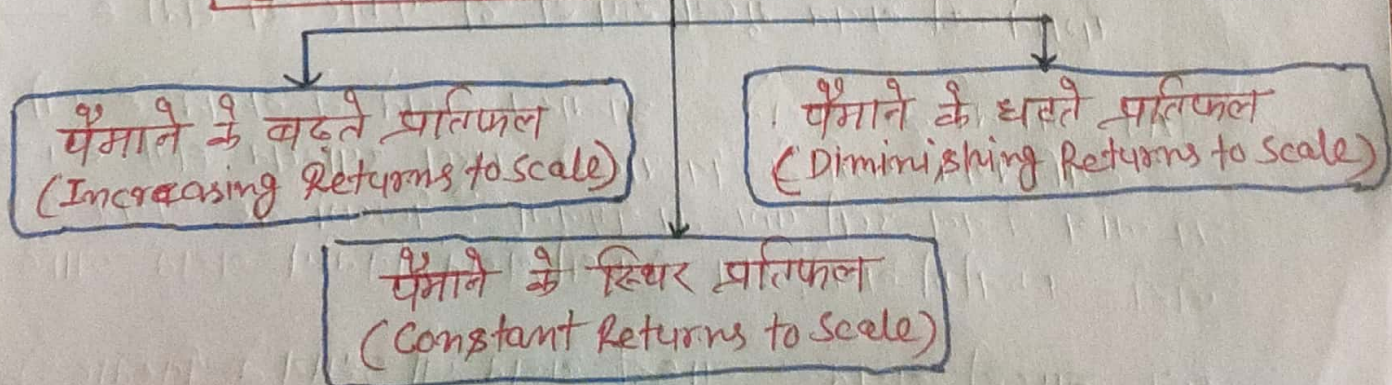 पैमाने के बढ़ते प्रतिफल
(Increasing Returns to scale)
पैमाने के घटते प्रतिफल
(Diminishing Returns to scale)
पैमाने के स्थिर प्रतिफल
(Constant Returns to Scale)